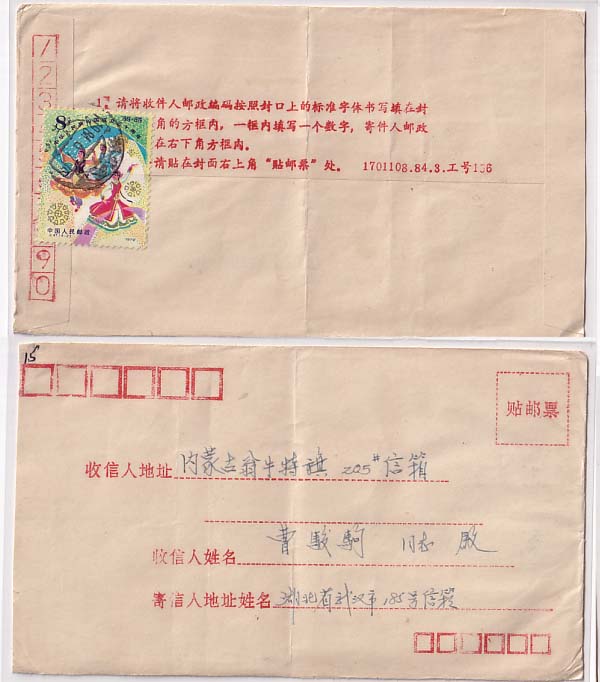 1 2 3
9 0
1、请将收件人邮政编码按照封口上的标准字体书写填在封
角的方框内，一框内填写一个数字，寄件人邮政
在右下角方框内。
请贴在封面右上角“贴邮票”处。 1701108.84.3.工号156
8
中国人民邮政
1979
15
贴邮票
收信人地址 内蒙古翁牛特旗 205#信箱
收信人姓名 曹骏驹 同志 殿
寄信人地址姓名 湖北省武汉市185号信箱